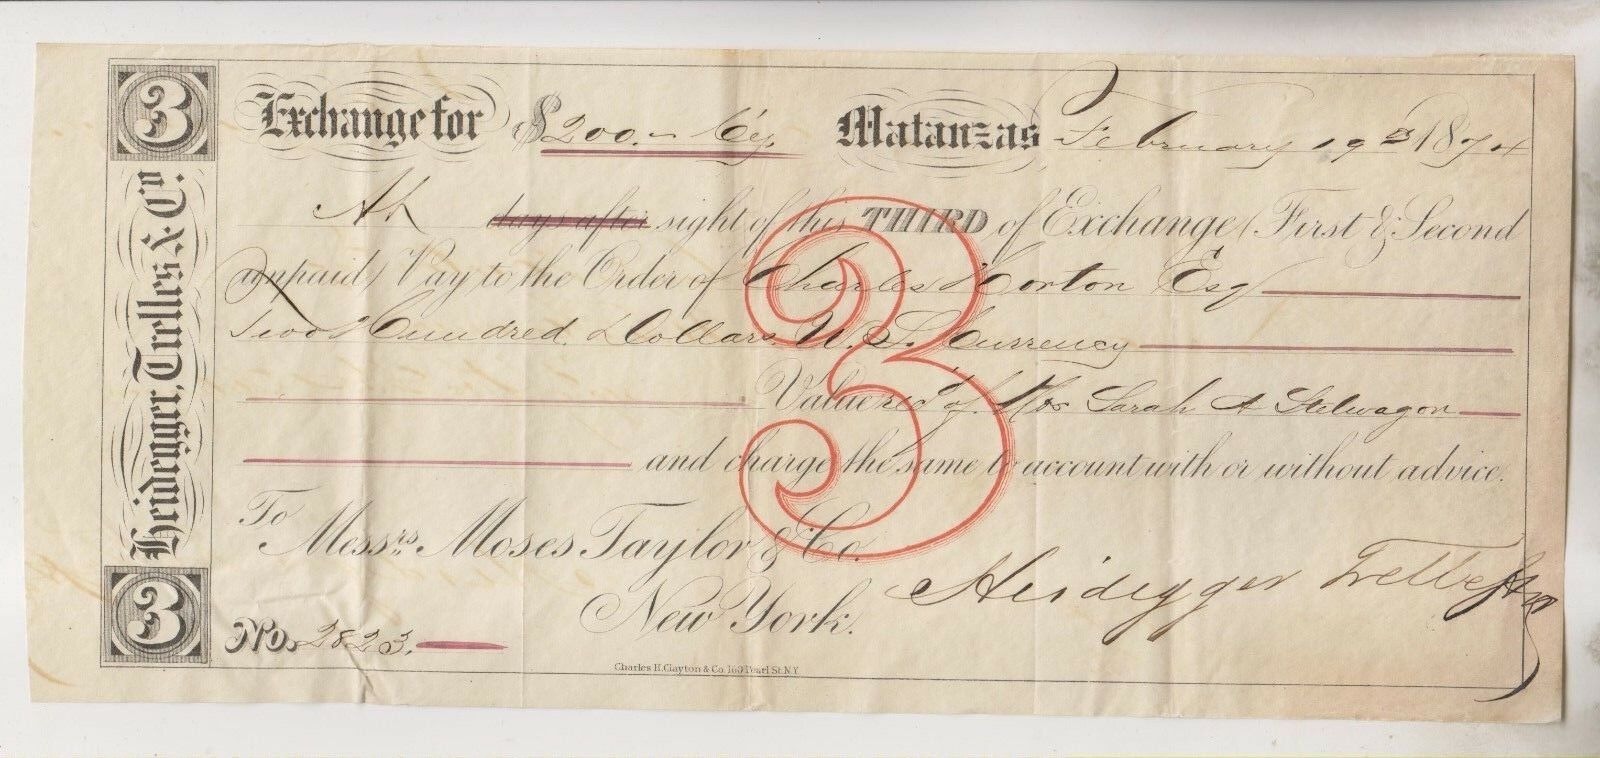 3
Exchange for $200.- Cy. Matanzas February 19th 1874
At days after sight of this THIRD of Exchange (First & Second
unpaid) Pay to the Order of Charles Horton Esq
Two Hundred Dollars U.S. Currency
3
Value rec'd of Mrs Sarah A Stelwagon
and charge the same to account with or without advice.
To
Messrs. Moses Taylor & Co.
New York.
Heidegger Trelles & Co
No. 2823.
Heidegger, Trelles & Co.
3
Charles H. Clayton & Co. 160 Pearl St. N.Y.